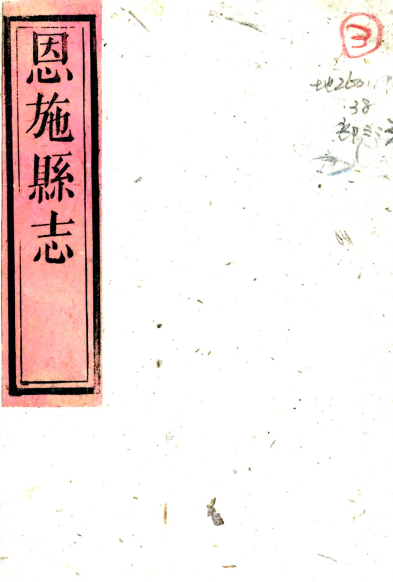 恩施縣志
3
地260
38